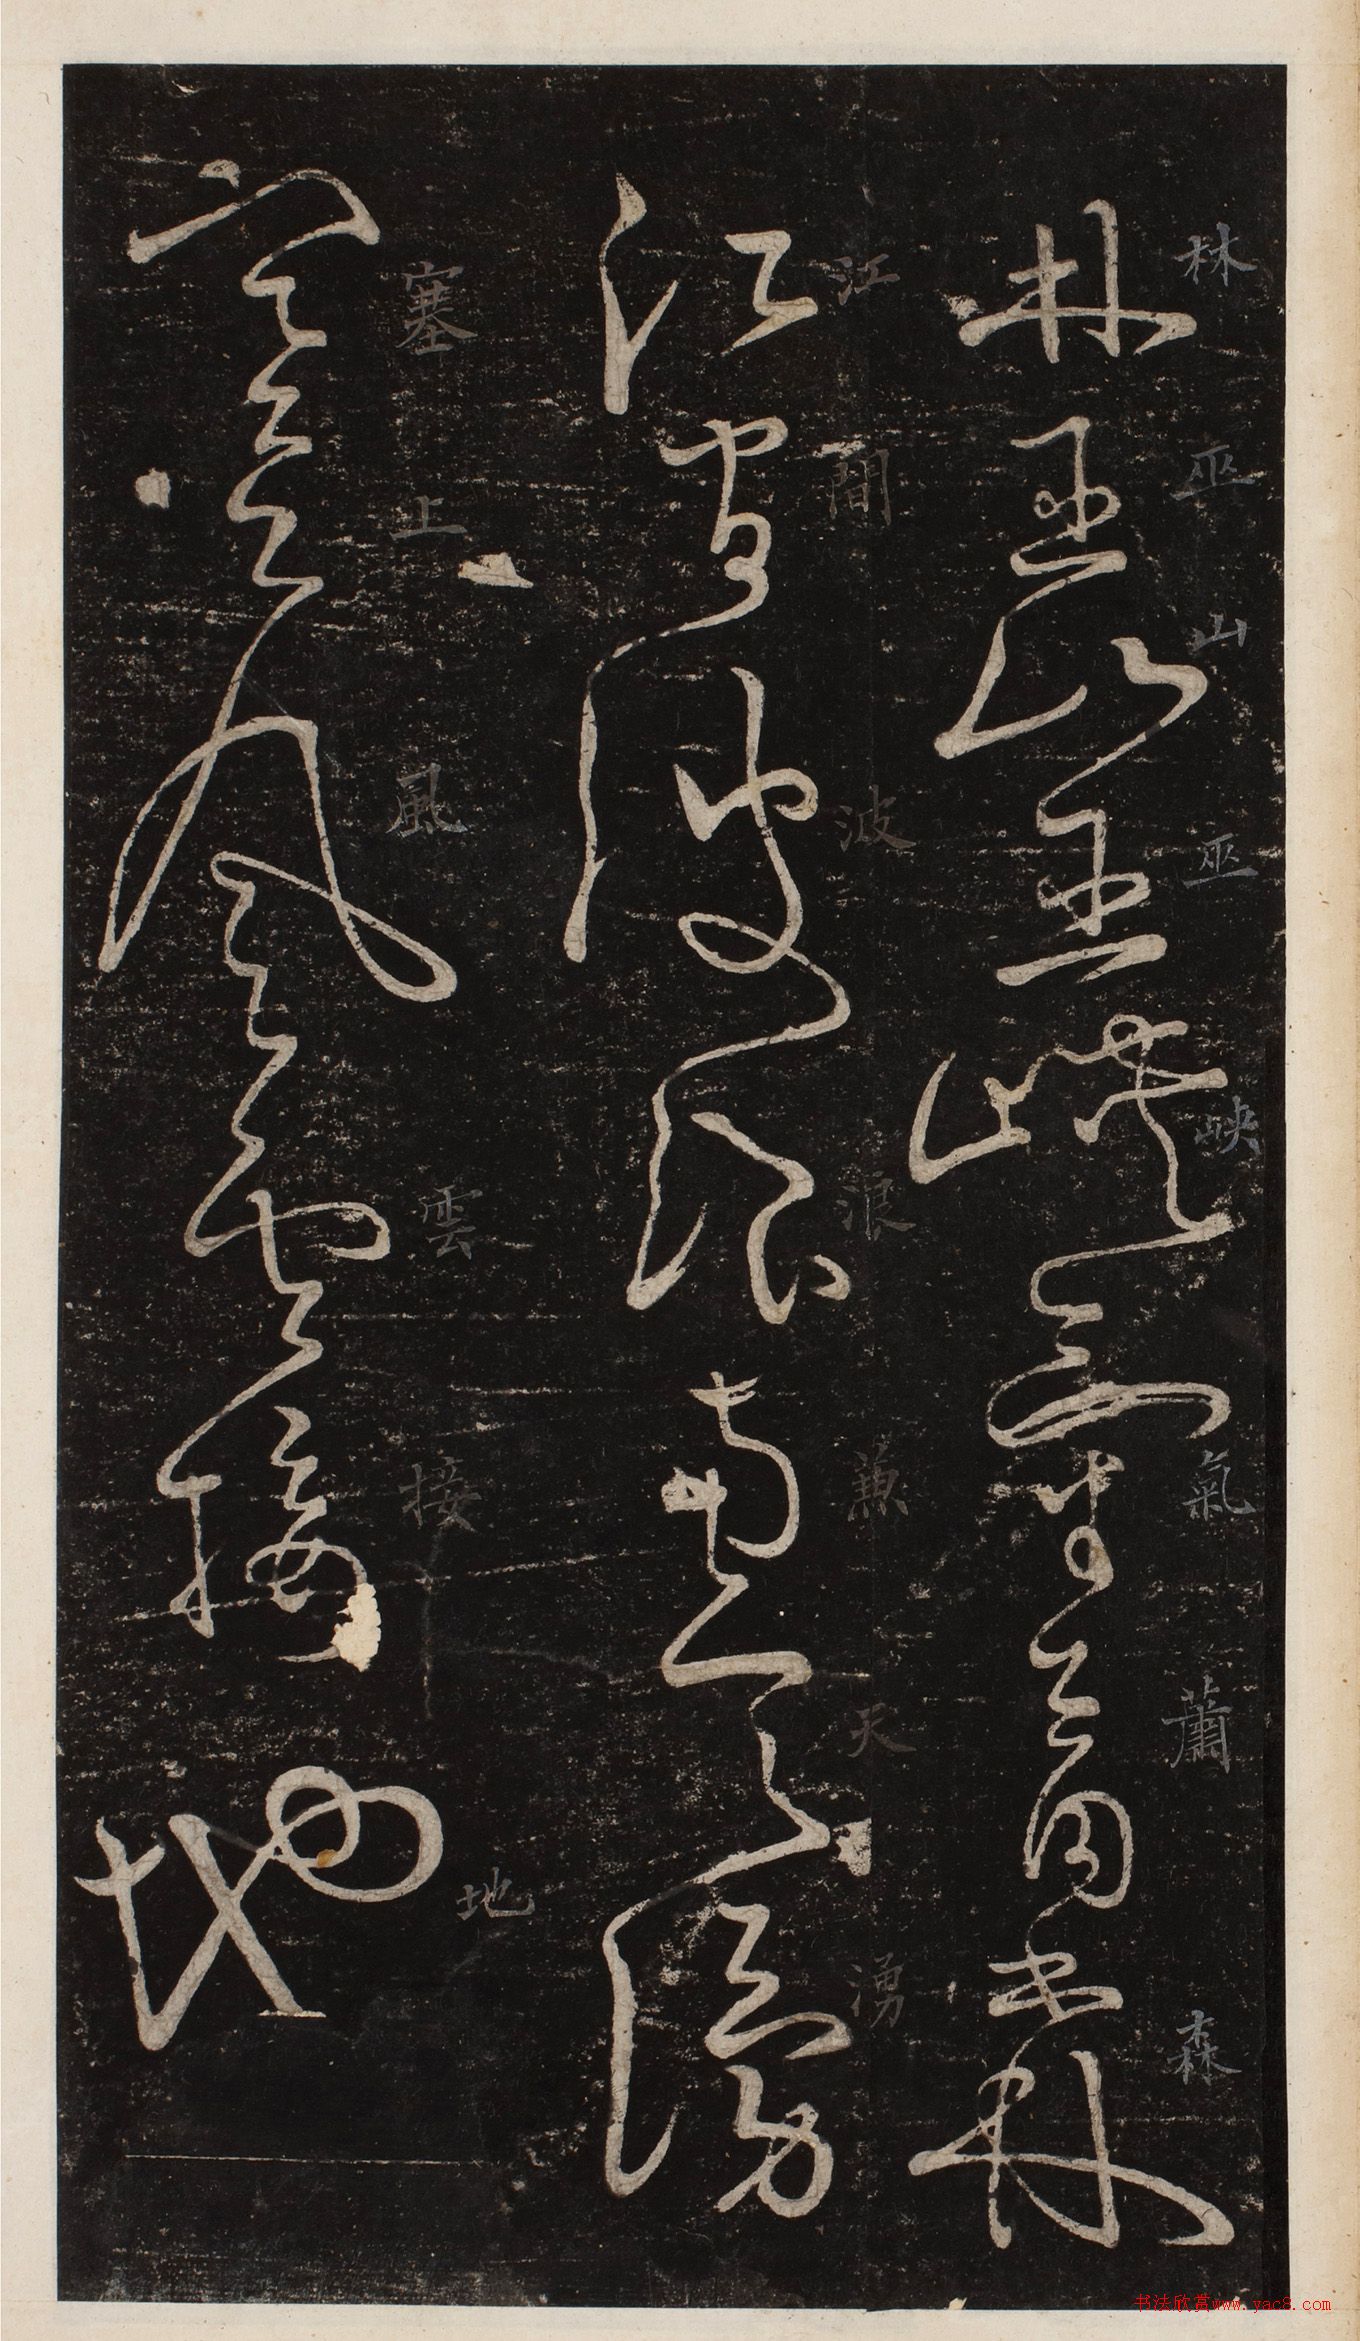 林巫山巫峽氣蕭森
林巫山巫峽氣蕭森
江間波浪兼天湧
江間波浪兼天湧
塞上風雲接地
塞上風雲接地
书法欣赏www.yac8.com